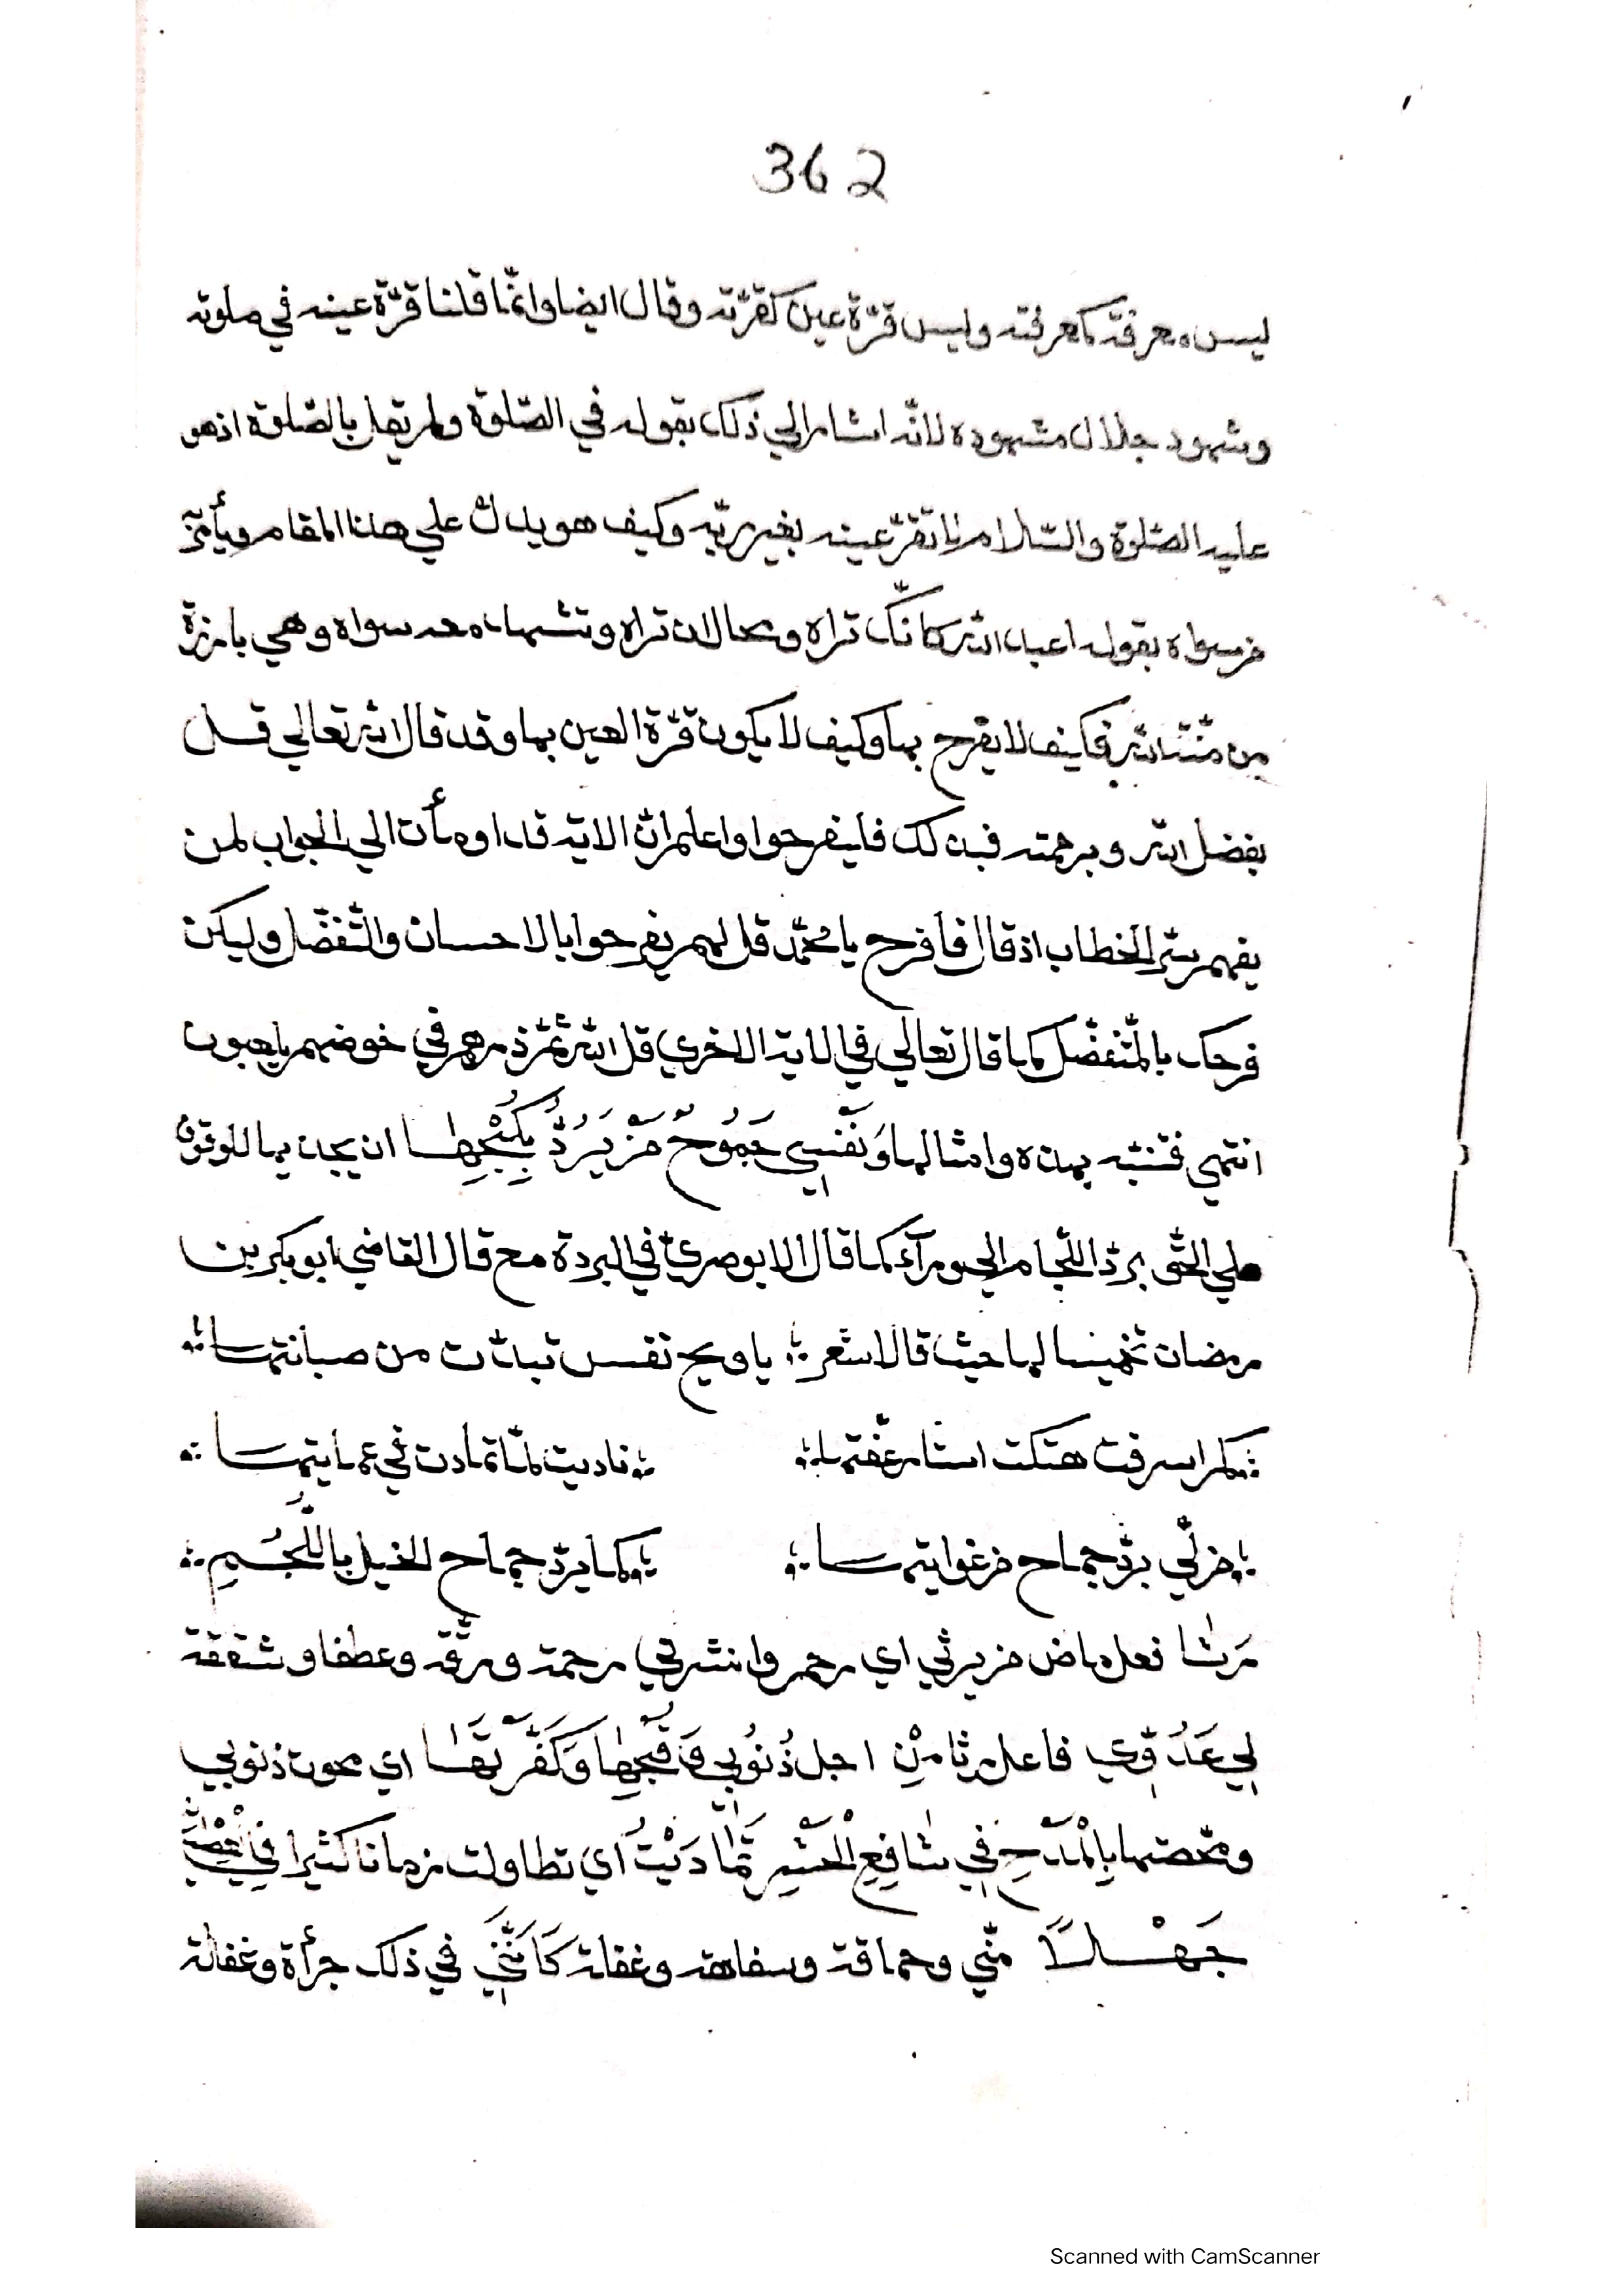 362
ليس معرفة كمعرفته وليس قرّة عين كقرّته وقال ايضا وانّما قلنا قرّة عينه في صلوته
وشهود جلال مشهوده لانّه اشار الي ذلك بقوله في الصّلوة ولم يقل بالصّلوة اذ هو
عليه الصّلوة والسّلام لا تقرّ عينه بغير ربّه وكيف هو يدل علي هذا المقام ويأمر به
من سواه بقوله اعبد الله كانّك تراه ومحال ان تراه وتشهد معه سواه وهي بارزة
من منّة الله فكيف لا يفرح بها وكيف لا يكون قرّة العين بها وقد قال الله تعالي قل
بفضل الله وبرحمته فبذلك فليفرحوا واعلم انّ الاية قد اومأت الي الجواب لمن
يفهم سرّ الخطاب اذ قال فافرح يا محمّد قل لهم يفرحوا بالاحسان والتّفضّل وليكن
فرحك بالمتفضّل كما قال تعالي في الاية الاخري قل الله ثمّ ذرهم في خوضهم يلعبون
انتهي فتنبّه بهذه وامثالها وَنَفْسِي جَمُوحٌ مَنْ يَرُدُّ بِكُبْحِهَا ان يجذبها للوقوف
علي الحقّ بردّ اللّجام الي ورآء كما قال الابوصريّ في البردة مع قال القاضي ابو بكر بن
رمضان تخميسا لها حيث قالا شعر ؛ يا ويح نفس تبدّت من صبانتها ؛
؛ كم اسرفت هتكت استار عفّتها ؛ ؛ ناديت لمّا تمادت في عمايتها ؛
؛ من لّي بردّ جماح من غوايتها ؛ ؛ كما يردّ جماح الخيل باللُّجُمِ ؛
رَثَا فعل ماض من يرثي اي رحم وانشرقي رحمة ورقّة وعطفا وشفقة
لِي عَدُوِّي فاعل رثا مِنْ اجل ذُنُوبِي وَقُبْحِهَا وَكَفَّرْتُهَا اي محوت ذنوبي
ومحّصتها بِالْمَدْحِ فِي شَافِعِ الْحَشْرِ تَمَادَيْتُ اي تطاولت زمانا كثيرا فِي
جَهْلاً منّي وحماقة وسفاهة وغفلة كَأَنَّنِي في ذلك جرأة وغفلة
Scanned with CamScanner